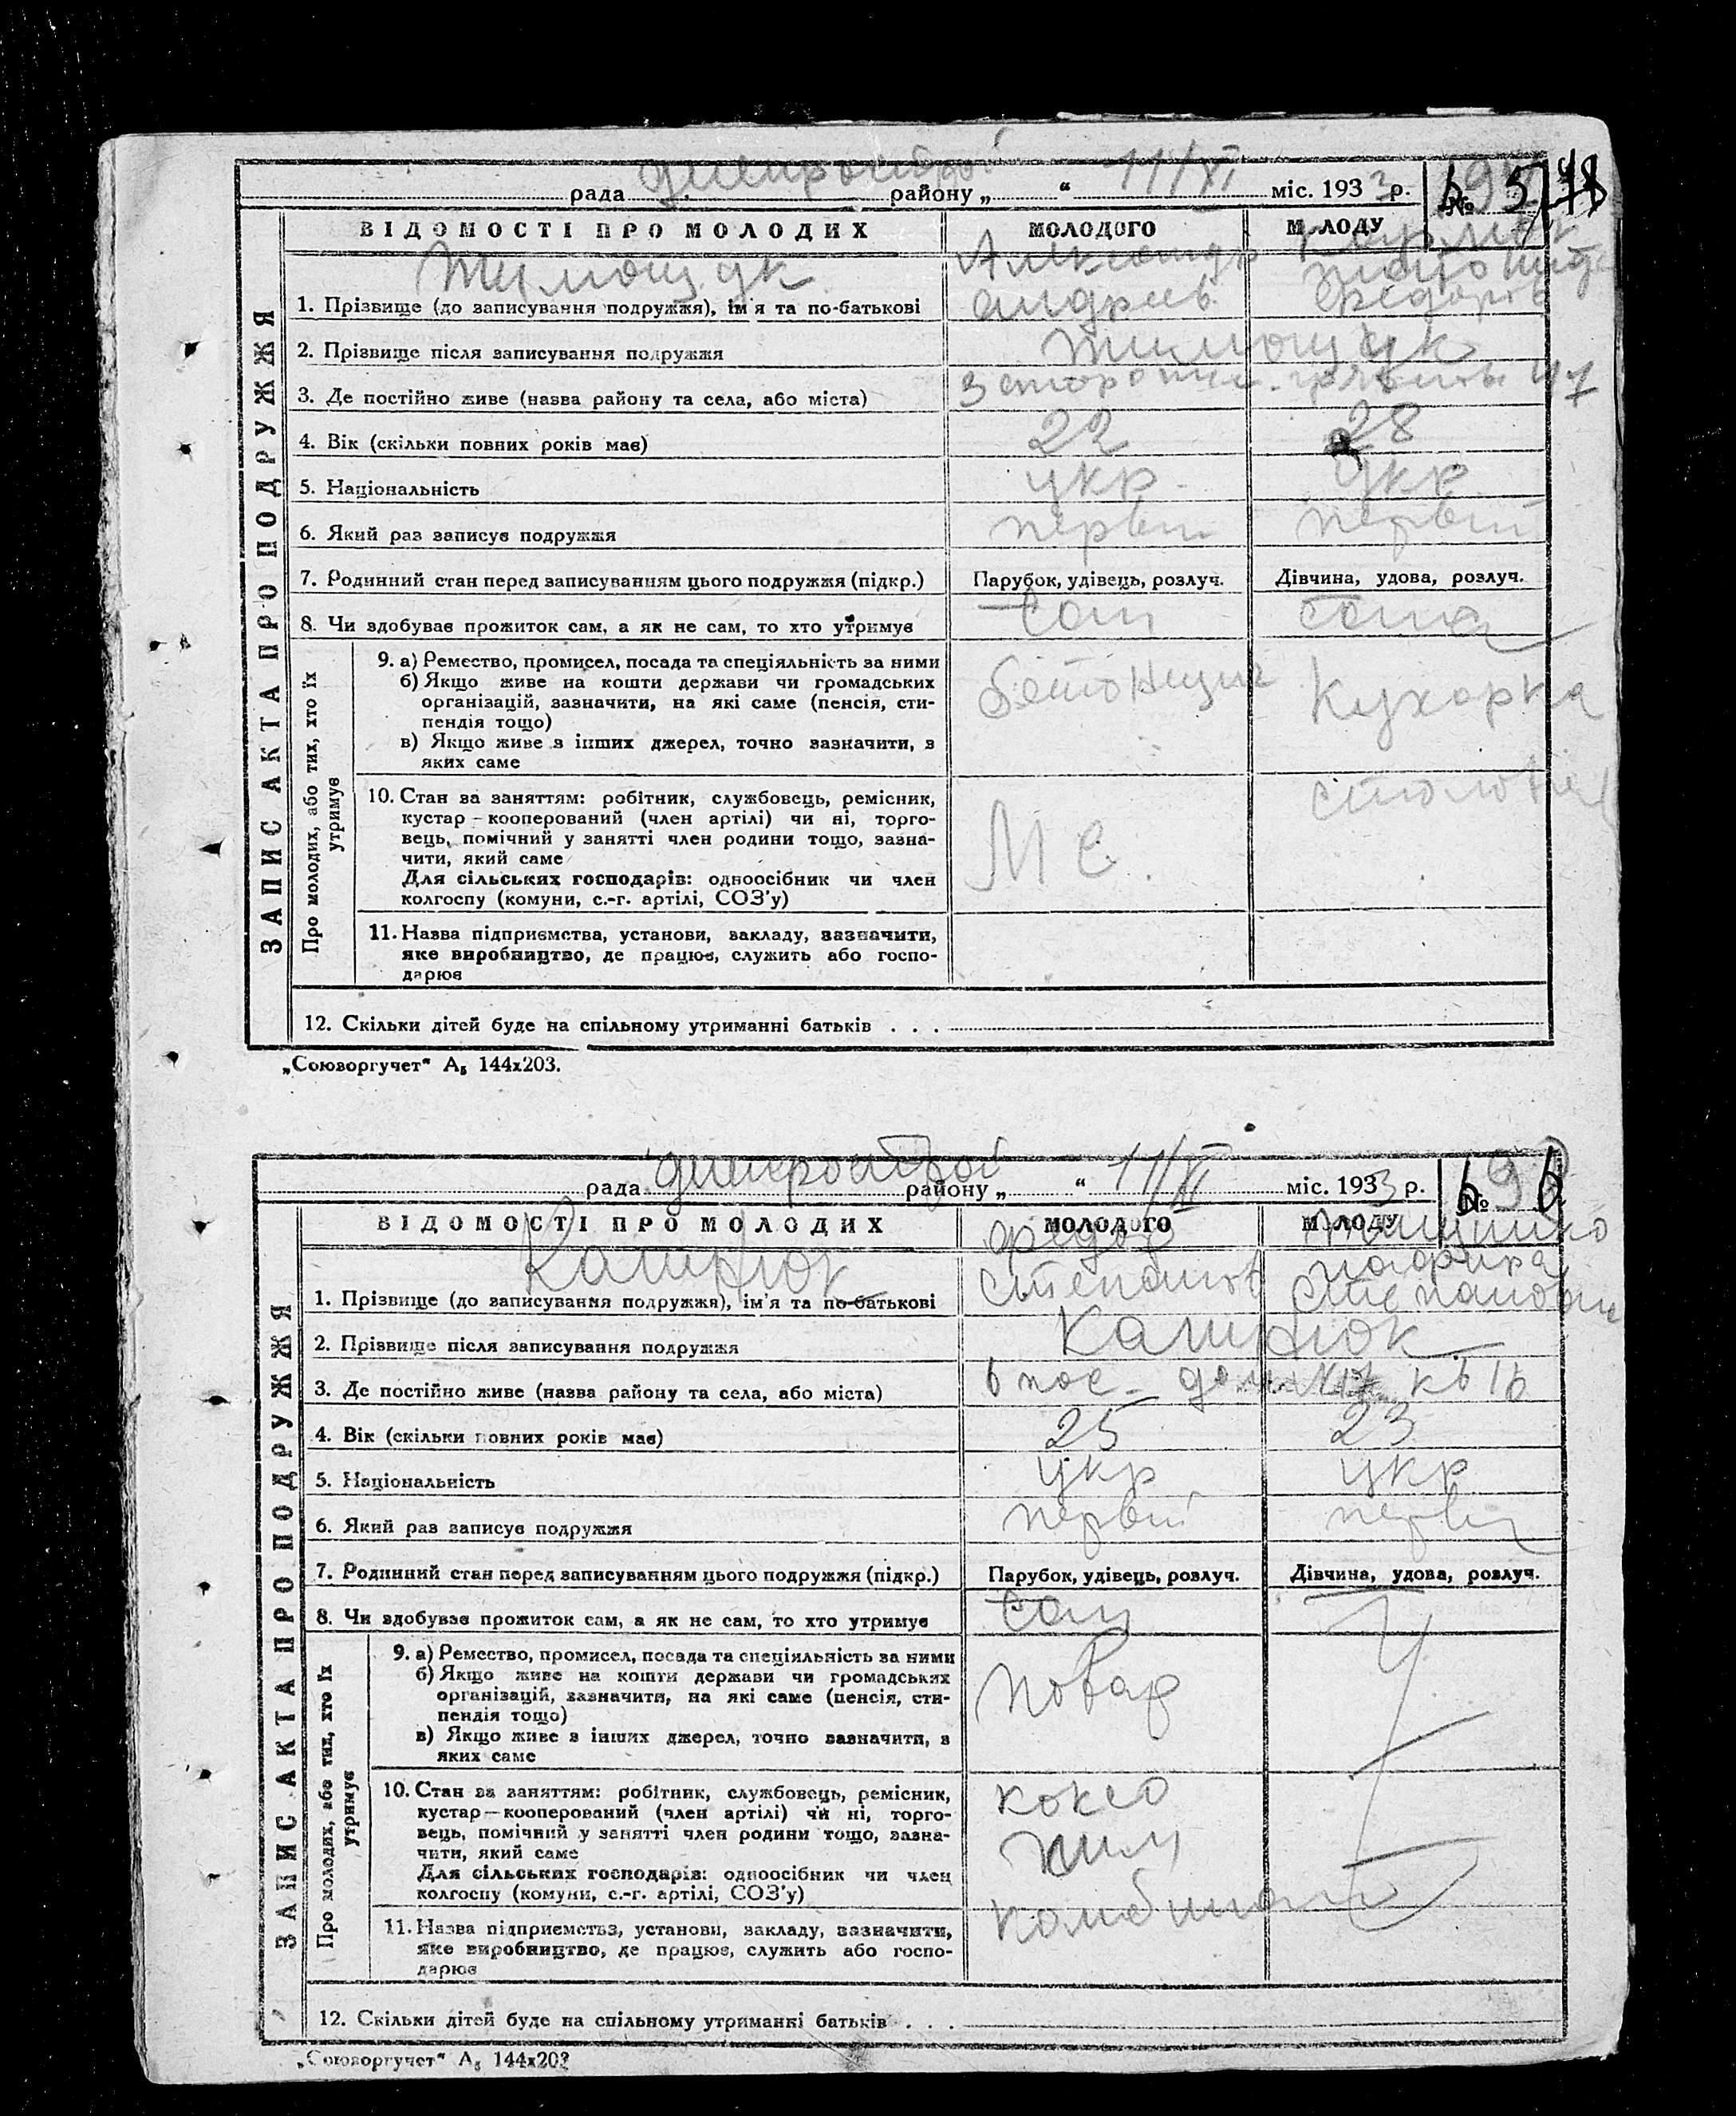 рада днепрострой району „ “ 11/XI міс. 1933 р. №
ВІДОМОСТІ ПРО МОЛОДИХ МОЛОДОГО МОЛОДУ
Тимощук Александр
1. Прізвище (до записування подружжя), ім'я та по-батькові андреев. федоров
2. Прізвище після записування подружжя Тимощук
3. Де постійно живе (назва району та села, або міста)
4. Вік (скільки повних років має) 22 28
5. Національність укр. укр
6. Який раз записує подружжя первий первий
7. Родинний стан перед записуванням цього подружжя (підкр.) Парубок, удівець, розлуч. Дівчина, удова, розлуч.
8. Чи здобував прожиток сам, а як не сам, то хто утримує сам сама
ЗАПИС АКТА ПРО ПОДРУЖЖЯ
Про молодих, або тих, хто їх утримує
9. а) Ремество, промисел, посада та спеціяльність за ними
б) Якщо живе на кошти держави чи громадських
організацій, зазначити, на які саме (пенсія, сти-
пендія тощо)
в) Якщо живе з інших джерел, точно зазначити, з
яких саме
бетонщик Кухарка
10. Стан за заняттям: робітник, службовець, ремісник,
кустар — кооперований (член артілі) чи ні, торго-
вець, помічний у занятті член родини тощо, зазна-
чити, який саме
Для сільських господарів: одноосібник чи член
колгоспу (комуни, с.-г. артілі, СОЗ'у)
11. Назва підприємства, установи, закладу, зазначити,
яке виробництво, де працює, служить або госпо-
дарює
12. Скільки дітей буде на спільному утриманні батьків . . .
„Союзоргучет“ А₅ 144х203.
рада днепрострой району „ “ 11/XI міс. 1933 р. №
ВІДОМОСТІ ПРО МОЛОДИХ МОЛОДОГО МОЛОДУ
федор
1. Прізвище (до записування подружжя), ім'я та по-батькові степанов степановна
2. Прізвище після записування подружжя
3. Де постійно живе (назва району та села, або міста) 6 пос.
4. Вік (скільки повних років має) 25 23
5. Національність укр укр
6. Який раз записує подружжя первий
7. Родинний стан перед записуванням цього подружжя (підкр.) Парубок, удівець, розлуч. Дівчина, удова, розлуч.
8. Чи здобував прожиток сам, а як не сам, то хто утримує сам
ЗАПИС АКТА ПРО ПОДРУЖЖЯ
Про молодих, або тих, хто їх утримує
9. а) Ремество, промисел, посада та спеціяльність за ними
б) Якщо живе на кошти держави чи громадських
організацій, зазначити, на які саме (пенсія, сти-
пендія тощо)
в) Якщо живе з інших джерел, точно зазначити, з
яких саме
повар
10. Стан за заняттям: робітник, службовець, ремісник,
кустар — кооперований (член артілі) чи ні, торго-
вець, помічний у занятті член родини тощо, зазна-
чити, який саме
Для сільських господарів: одноосібник чи член
колгоспу (комуни, с.-г. артілі, СОЗ'у)
коксо
хим
комбинат
11. Назва підприємства, установи, закладу, зазначити,
яке виробництво, де працює, служить або госпо-
дарює
12. Скільки дітей буде на спільному утриманні батьків . . .
„Союзоргучет“ А₅ 144х203